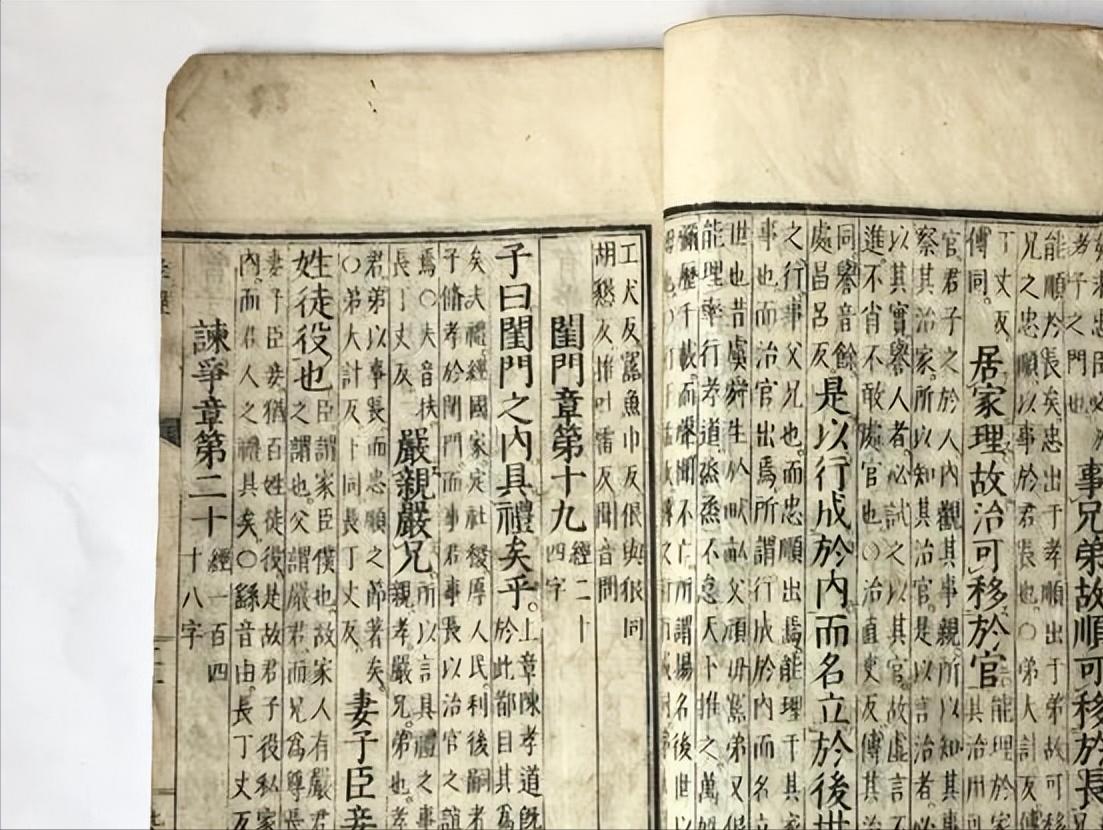 事兄弟故順可移於長
能順於長矣忠出于孝順出于弟故可移
兄之忠順以事於君長也○弟大計反傳
丁丈反
傅同。
居家理故治可移於官
能理於家
其治用可
官君子之於人內觀其事親所以知其事
察其治家所以知其治官是以言治者必
以其實譽人者必試之以其官故虛言不
進不肖不敢處官也○治直吏反傅其治
同譽音餘
處昌呂反
是以行成於內而名立於後世
之行事父兄也而忠順出焉能理于其家
事也而治官出焉所謂行成於內而名立
世也昔虞舜生於畎畝父頑母嚚弟又佷
能理率行孝道烝烝不怠天下推之萬姓
彌歷千載而聲聞不亡所謂揚名後世以
工犬反嚚魚巾反佷與很同
胡懇反推叶雷反聞音問
閨門章第十九
經二十
四字
子曰閨門之內具禮矣乎。
上章陳孝道既
於此都目其為
矣夫禮經國家定社稷厚人民利後嗣者
子脩孝於閨門而事君事長以治官之誼
焉○夫音扶
長丁丈反
嚴親嚴兄
所以言具禮之事
親孝嚴兄。弟也。孝
君弟以事長而忠順之節著矣。
○弟大計反下同長丁丈反
妻子臣妾
姓徒役也
臣謂家臣僕也故家人有嚴君
之謂也父謂嚴君而兄爲尊長
妻子臣妾猶百姓徒役是故君子役私家
內而君人之禮具矣○繇音由長丁丈反
諫爭章第二十
經一百四
十八字